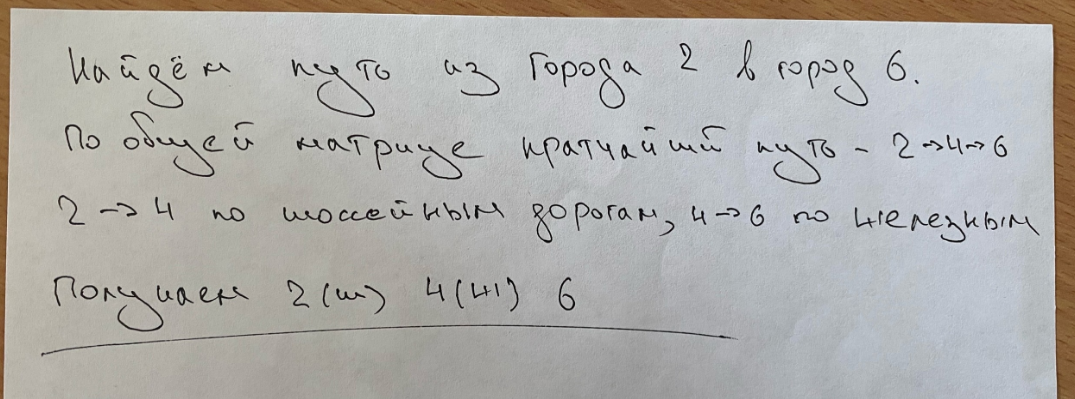 Найдём путь из города 2 в город 6.
По общей матрице кратчайший путь - 2→4→6
2→4 по шоссейным дорогам, 4→6 по железным
Получаем 2(ш) 4(ж) 6